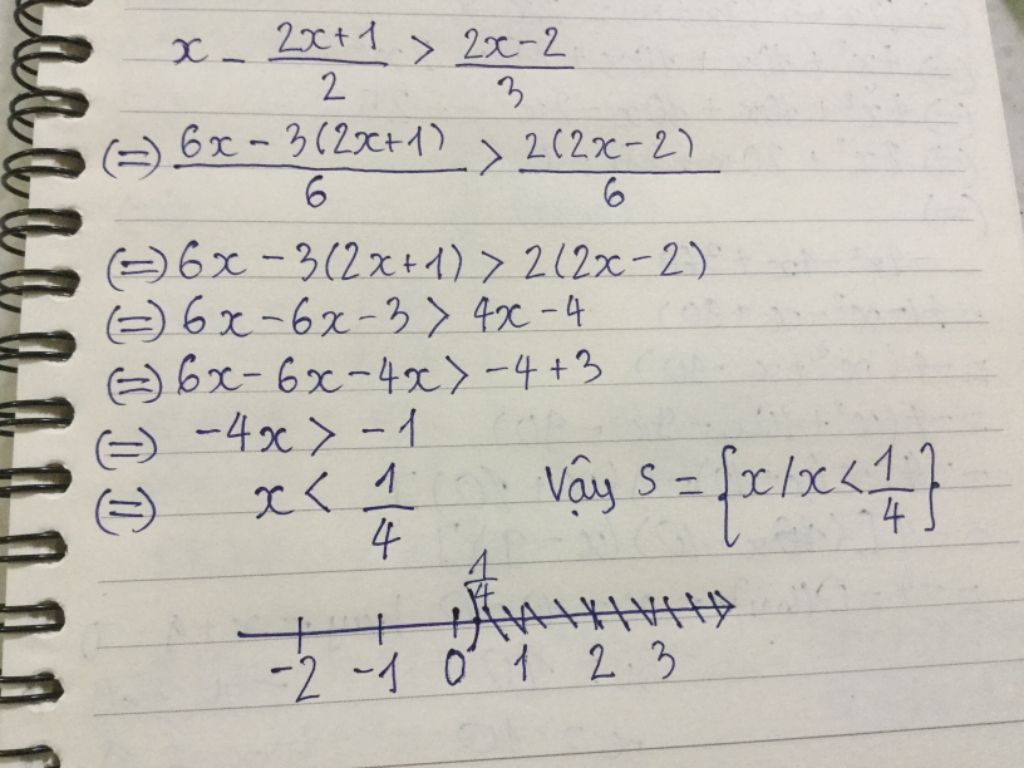 x - \frac{2x+1}{2} > \frac{2x-2}{3}
(=) \frac{6x - 3(2x+1)}{6} > \frac{2(2x-2)}{6}
(=) 6x - 3(2x+1) > 2(2x-2)
(=) 6x - 6x - 3 > 4x - 4
(=) 6x - 6x - 4x > -4 + 3
(=) -4x > -1
(=) x < \frac{1}{4} Vậy S = {x/x < \frac{1}{4}}
\frac{1}{4}
-2 -1 0 1 2 3